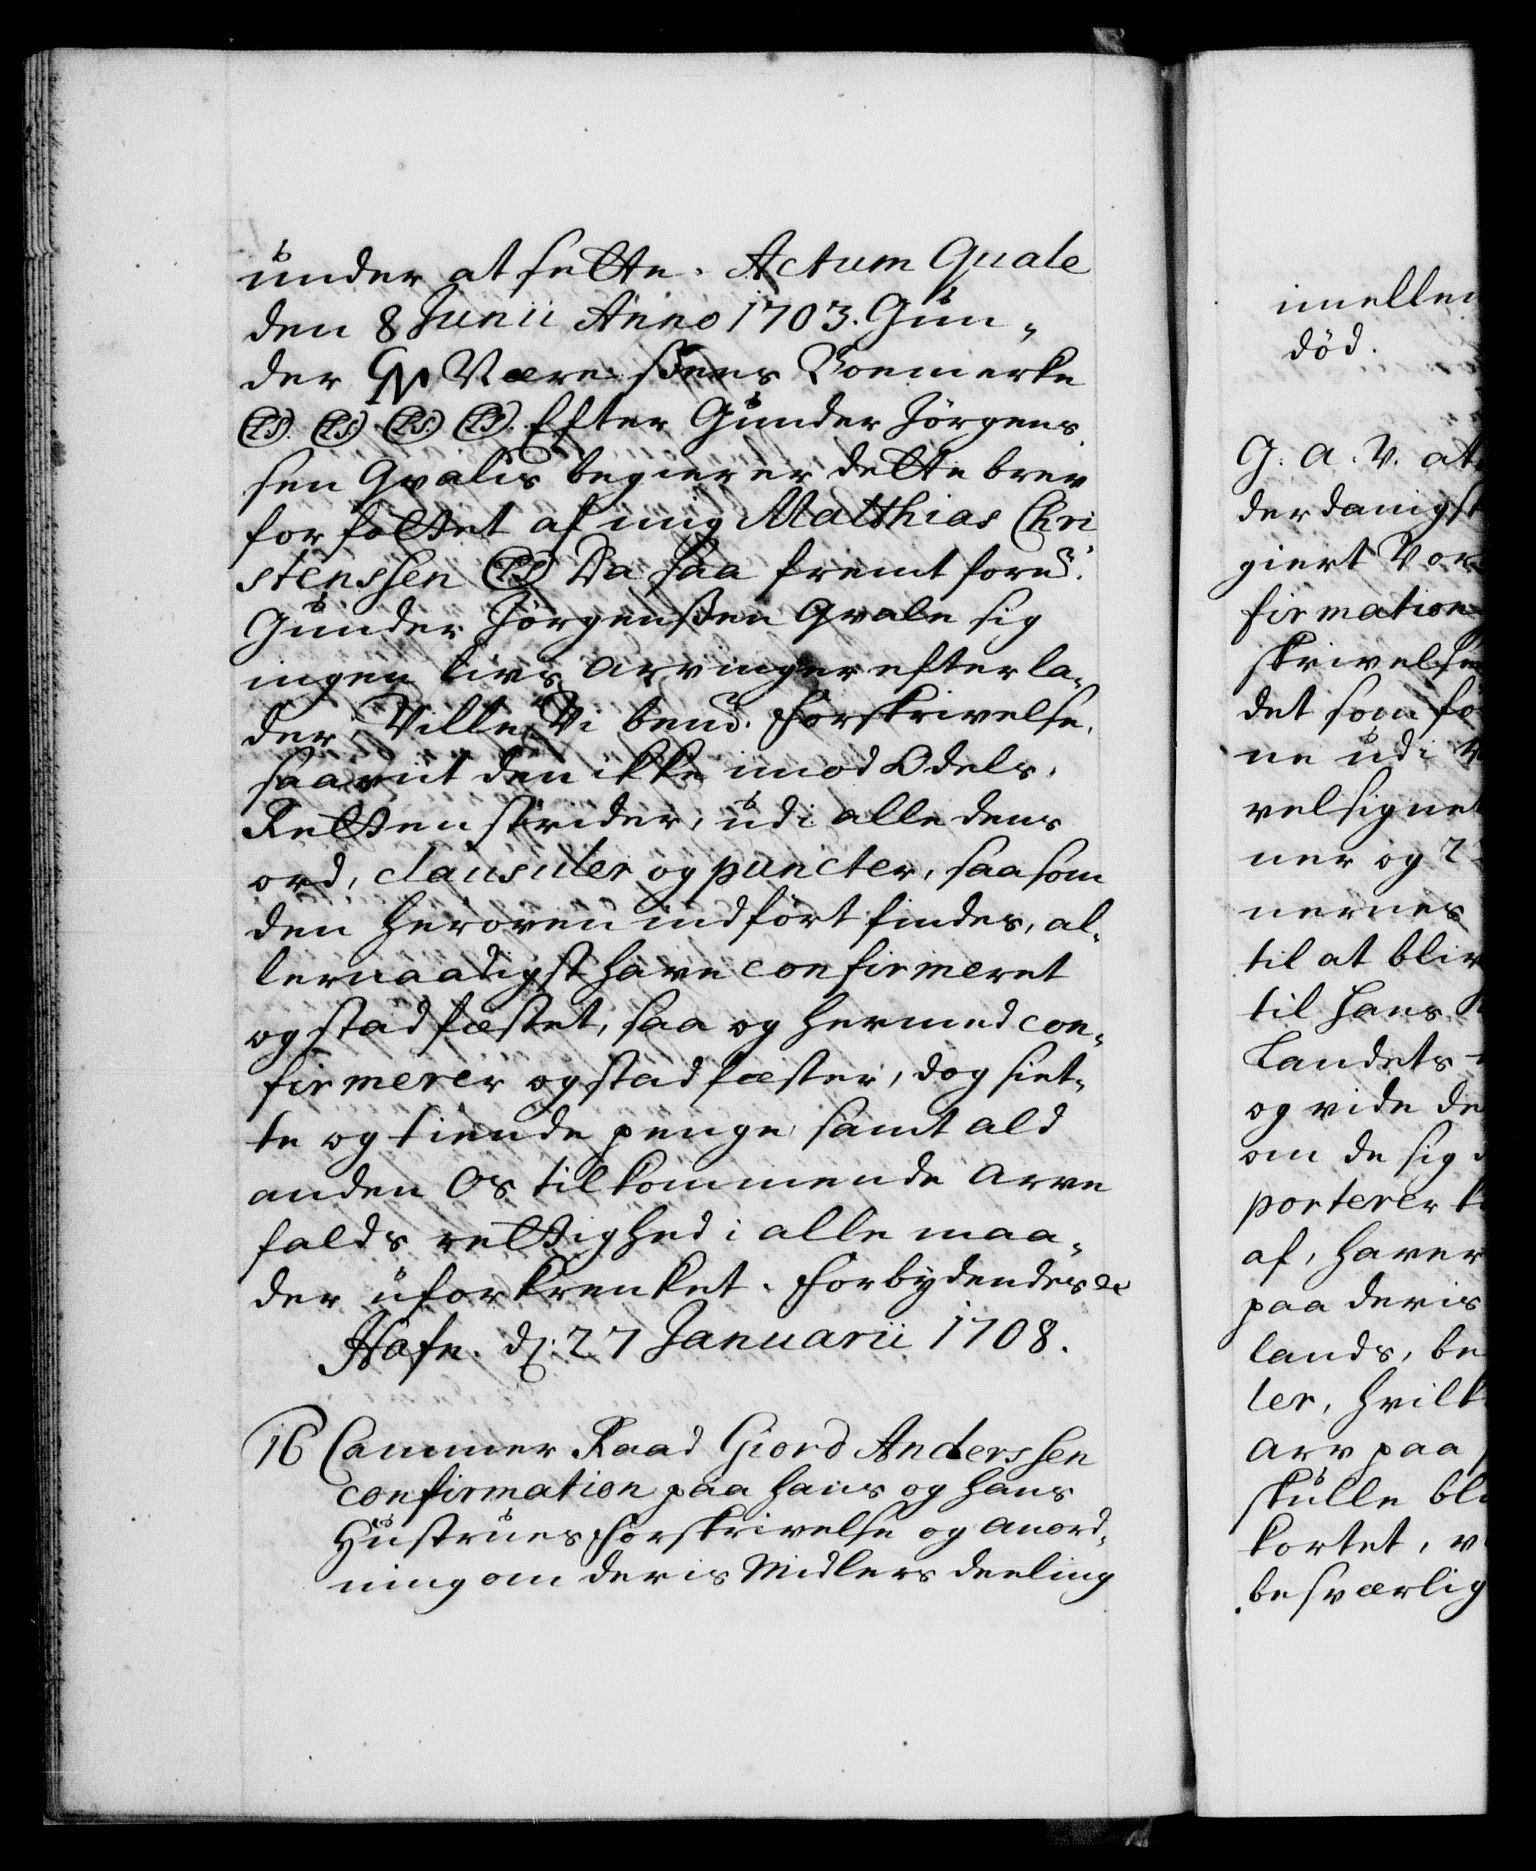 under at sette. Actum Quale
den 8 Junii Anno 1703. Gun-
der Være ssens Boemerke
(LS). (LS) (LS) (LS). Efter Gunder Jörgens
sen Qvalis begierer dette brev
forfattet af mig Matthias Chri
stenssen (LS) Da saa fremt forn.
Gunder Jörgenssen Qvale sig
ingen livs arvinger efterla-
der, Ville Vi bem. Forskrivelse,
saavit den ikke imod Odels-
Retten strider, udi alle dens
ord, clausuler og puncter, saasom
den heroven indfört findes, al-
lernaadigst have confirmeret
og stadfæstet, saa og hermed con-
firmerer og stadfæster, dog siet-
te og tiende penge samt ald
anden Os tilkommende arve
falds rettighed i alle maa-
der uforkrenket. Forbydendes &c
Hafn. d: 27 Januarii 1708.
16 Cammer Raad Giord Anderssen
confirmation paa hans og hans
Hustrues Forskrivelse og anord-
ning om deris Midlers deeling
imellem
död.
G. A. V. at
derdanigst
giert Vor
firmation
skrivelse
det som fo
ne udi
velsignet
ner og
nernes
til at bliv
til hans
Landets
og vide de
om de sig
porterer
af, haver
paa deris
lands, be
ler, hvilk
arv paa
skulle bl
kortet, v
besværlig